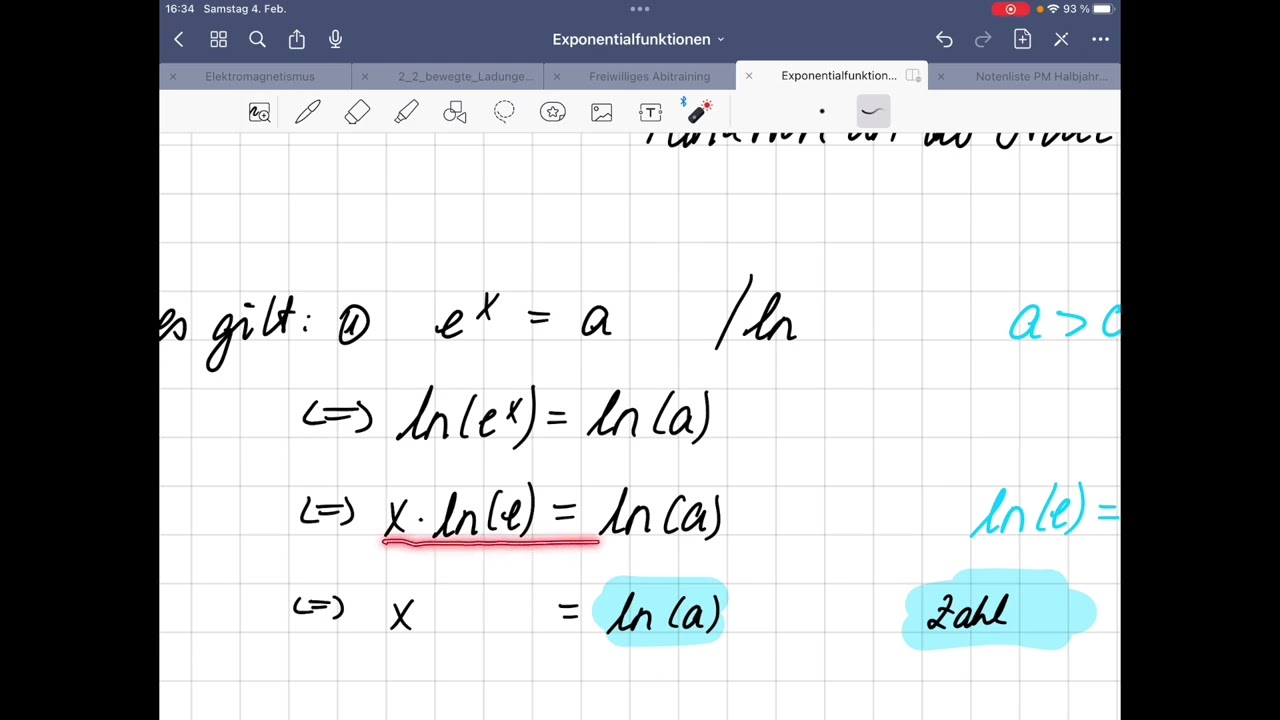 16:34 Samstag 4. Feb.
93 %
Exponentialfunktionen
Elektromagnetismus
2_2_bewegte_Ladunge...
Freiwilliges Abitraining
Exponentialfunktion...
Notenliste PM Halbjahr...
es gilt: ① eˣ = a /ln a > 0
<=> ln(eˣ) = ln(a)
<=> x · ln(e) = ln(a) ln(e) =
<=> x = ln(a) Zahl